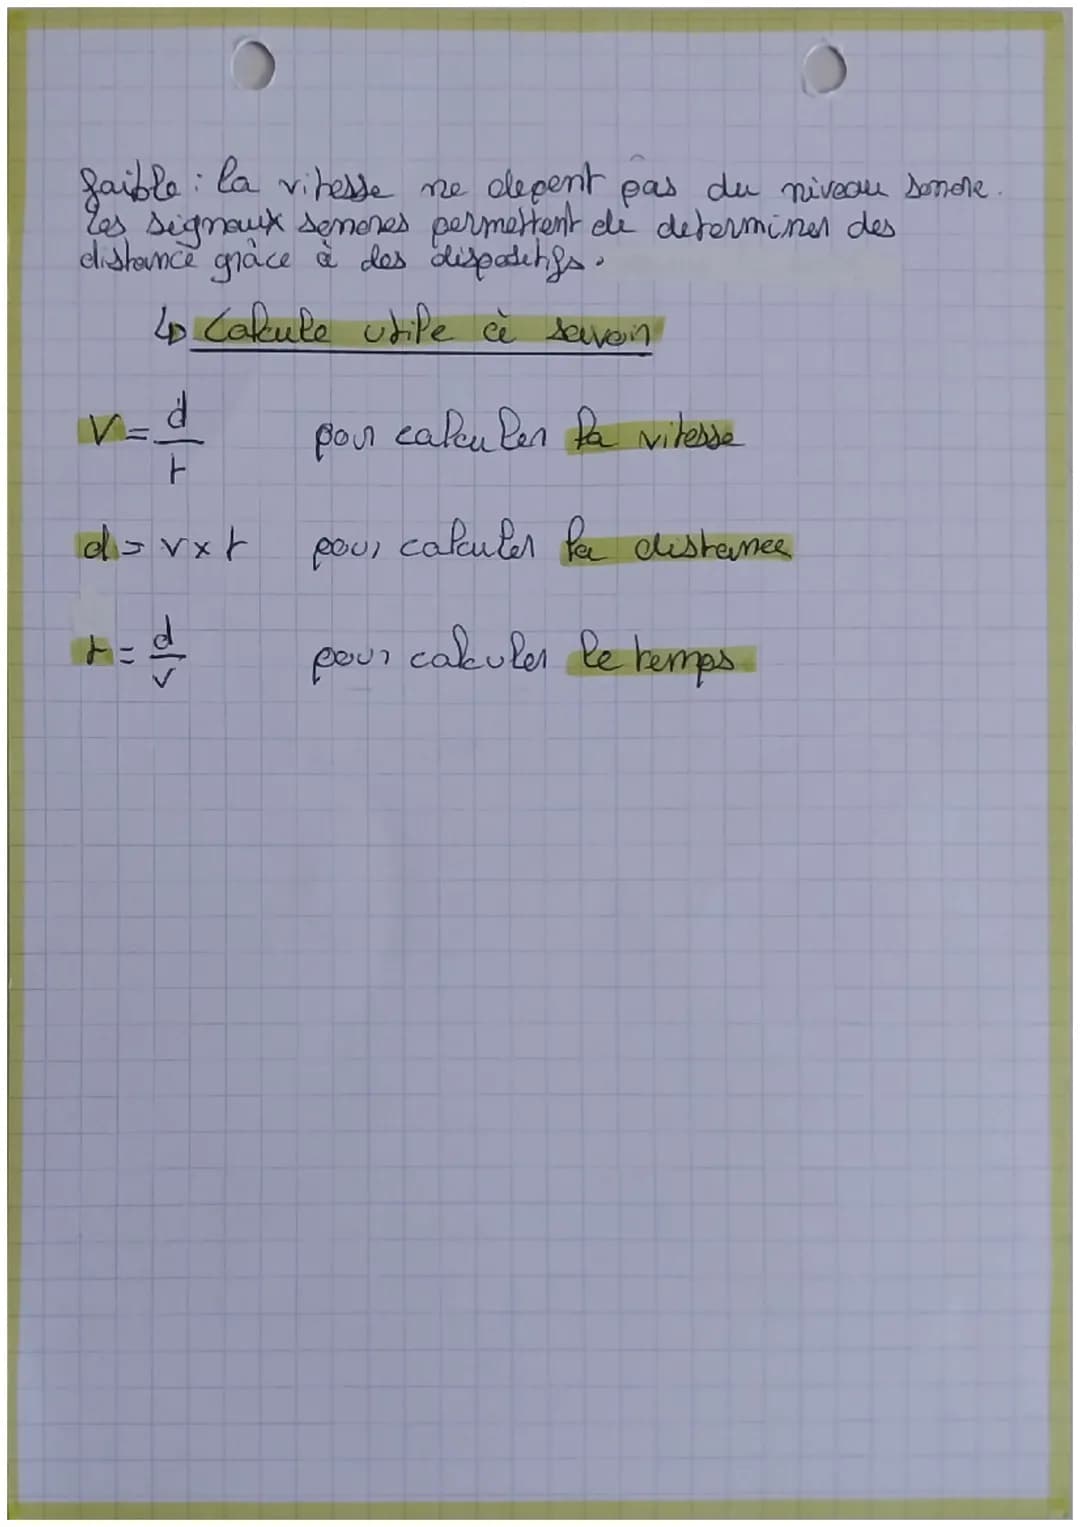 faible : la vitesse ne depent pas du niveau sonore.
les signaux sonores permettent de determiner des
distance grâce à des dispositifs.
↳ Calcule utile à savoir
V = d/t pour calculer la vitesse
d = v x t pour calculer la distance
t = d/v pour calculer le temps